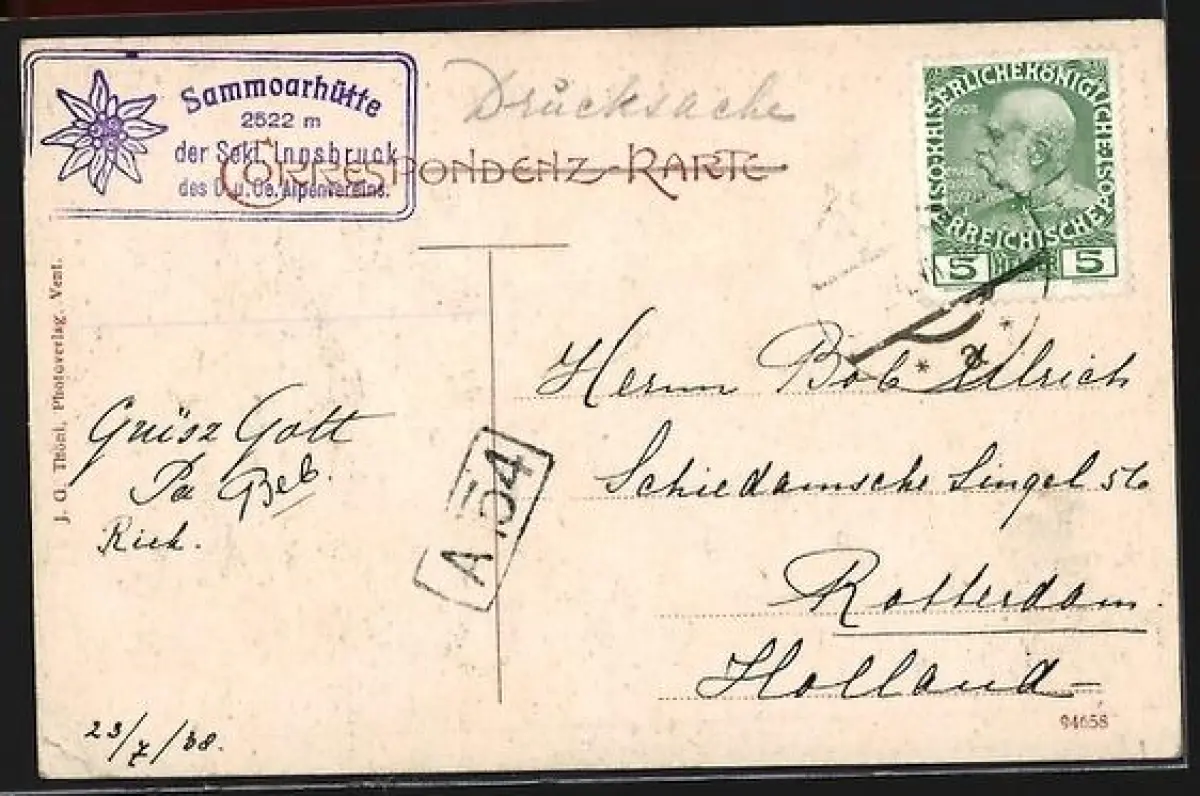 Sammoarhütte
2522 m
der Sekt. Innsbruck
des D. u. Oe. Alpenvereins.
Drucksache
CORRESPONDENZ-KARTE
KAISERLICHE KÖNIGLICHE ÖSTERREICHISCHE POST
1908
5 HELLER 5
J. G. Thöni, Photoverlag, Vent.
Grüsz Gott
Pa Beb.
Rich.
23/7/08.
A 154
Herrn Bob Ullrich
Schiedamsche Singel 56
Rotterdam.
Holland
94658